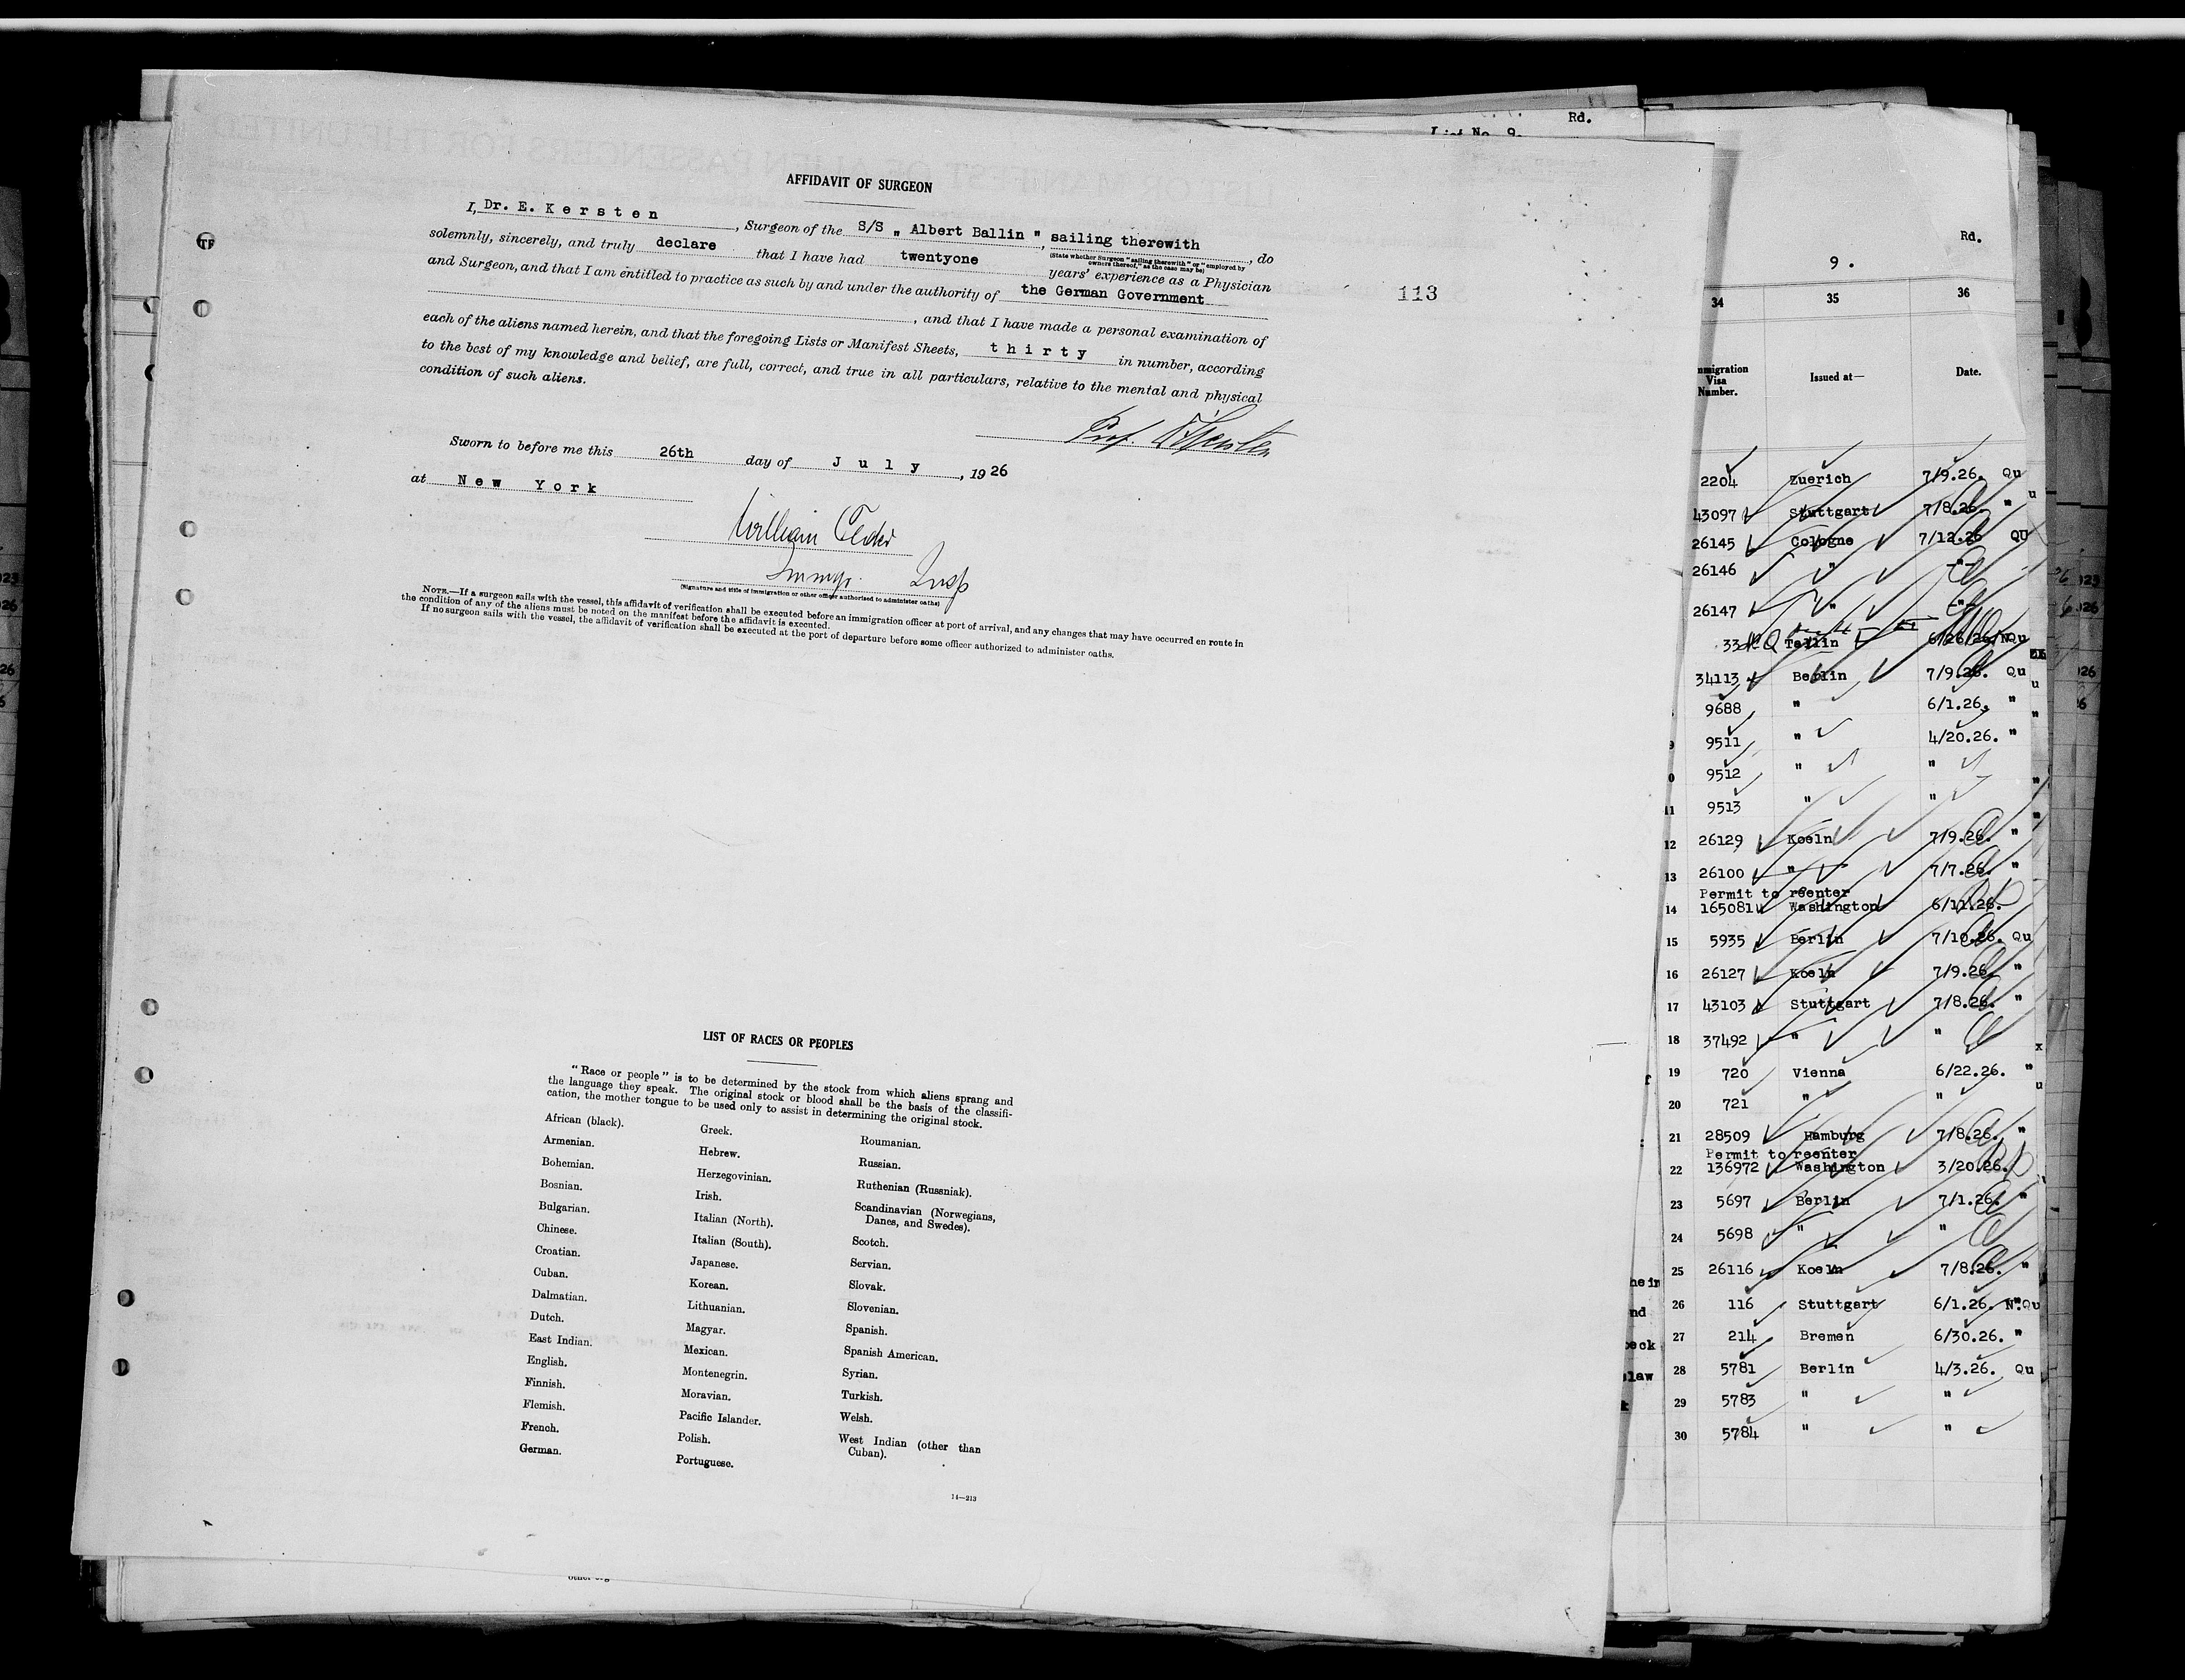 AFFIDAVIT OF SURGEON
I, Dr. E. Kersten, Surgeon of the S/S „ Albert Ballin ", sailing therewith, do
(State whether Surgeon "sailing therewith" or "employed by owners thereof," as the case may be)
solemnly, sincerely, and truly declare that I have had twentyone years' experience as a Physician
and Surgeon, and that I am entitled to practice as such by and under the authority of the German Government
, and that I have made a personal examination of
each of the aliens named herein, and that the foregoing Lists or Manifest Sheets, thirty in number, according
to the best of my knowledge and belief, are full, correct, and true in all particulars, relative to the mental and physical
condition of such aliens.
Sworn to before me this 26th day of July, 1926
at New York
William
Immgr. Insp
(Signature and title of immigration or other officer authorized to administer oaths)
NOTE.—If a surgeon sails with the vessel, this affidavit of verification shall be executed before an immigration officer at port of arrival, and any changes that may have occurred en route in
the condition of any of the aliens must be noted on the manifest before the affidavit is executed.
If no surgeon sails with the vessel, the affidavit of verification shall be executed at the port of departure before some officer authorized to administer oaths.
113
LIST OF RACES OR PEOPLES
"Race or people" is to be determined by the stock from which aliens sprang and
the language they speak. The original stock or blood shall be the basis of the classifi-
cation, the mother tongue to be used only to assist in determining the original stock.
African (black).
Armenian.
Bohemian.
Bosnian.
Bulgarian.
Chinese.
Croatian.
Cuban.
Dalmatian.
Dutch.
East Indian.
English.
Finnish.
Flemish.
French.
German.
Greek.
Hebrew.
Herzegovinian.
Irish.
Italian (North).
Italian (South).
Japanese.
Korean.
Lithuanian.
Magyar.
Mexican.
Montenegrin.
Moravian.
Pacific Islander.
Polish.
Portuguese.
Roumanian.
Russian.
Ruthenian (Russniak).
Scandinavian (Norwegians,
Danes, and Swedes).
Scotch.
Servian.
Slovak.
Slovenian.
Spanish.
Spanish American.
Syrian.
Turkish.
Welsh.
West Indian (other than
Cuban).
14—213
Rd.
List No. 9.
Rd.
9.
34 35 36
Visa
Number. Issued at— Date.
2204 Zuerich 7/9.26. Qu
43097 Stuttgart 7/8.26. "
26145 Cologne 7/12.26 QU
26146 " "
26147 " "
33 Tallin 6/26/26/NQu
34113 Berlin 7/9.26. Qu
9688 " 6/1.26. "
9511 " 4/20.26. "
9512 " "
11 9513 " "
12 26129 Koeln 7/9.26. "
13 26100 " 7/7.26. "
Permit to reenter
14 165081 Washington 6/11.26.
15 5935 Berlin 7/10.26. Qu
16 26127 Koeln 7/9.26. "
17 43103 Stuttgart 7/8.26. "
18 37492 " "
19 720 Vienna 6/22.26. "
20 721 " "
21 28509 Hamburg 7/8.26. "
Permit to reenter
22 136972 Washington 3/20.26.
23 5697 Berlin 7/1.26. "
24 5698 " "
25 26116 Koeln 7/8.26. "
26 116 Stuttgart 6/1.26. N.Qu
27 214 Bremen 6/30.26. "
28 5781 Berlin 4/3.26. Qu
29 5783 " "
30 5784 " "